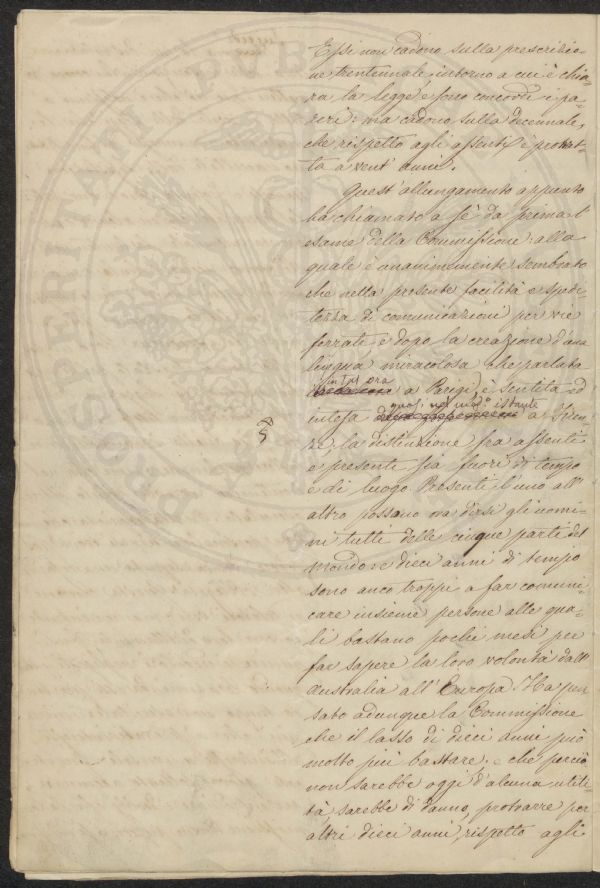 Essi non cadono sulla prescrizio-
ne trentennale, intorno a cui è chia-
ra la legge e sono concordi i pa-
reri: ma cadono sulla decennale,
che rispetto agli assenti è protrat-
ta a vent' anni.
Quest' allungamento appunto
ha chiamato a sè da prima l'
esame della Commissione: alla
quale è unanimemente sembrato
che nella presente facilità e spedi-
tezza di comunicazioni per vie
ferrate e dopo la creazione d'una
lingua miracolosa che parlata
in tal ora
a Parigi, è sentita ed
quasi nel med.º istante
intesa a Firen-
ze, la distinzione fra assenti
e presenti sia fuori di tempo
e di luogo. Presenti l'uno all'
altro possano ora dirsi gli uomi-
ni tutti delle cinque parti del
mondo: e dieci anni di tempo
sono anco troppi a far comuni-
care insieme persone alle qua-
li bastano pochi mesi per
far sapere la loro volontà dall'
Australia all' Europa. Ha pen
sato adunque la Commissione
che il lasso di dieci anni può
molto più bastare: e che perciò
non sarebbe oggi d'alcuna utili-
tà, sarebbe di danno, protrarre per
altri dieci anni, rispetto agli
PROSPERITATI PVB